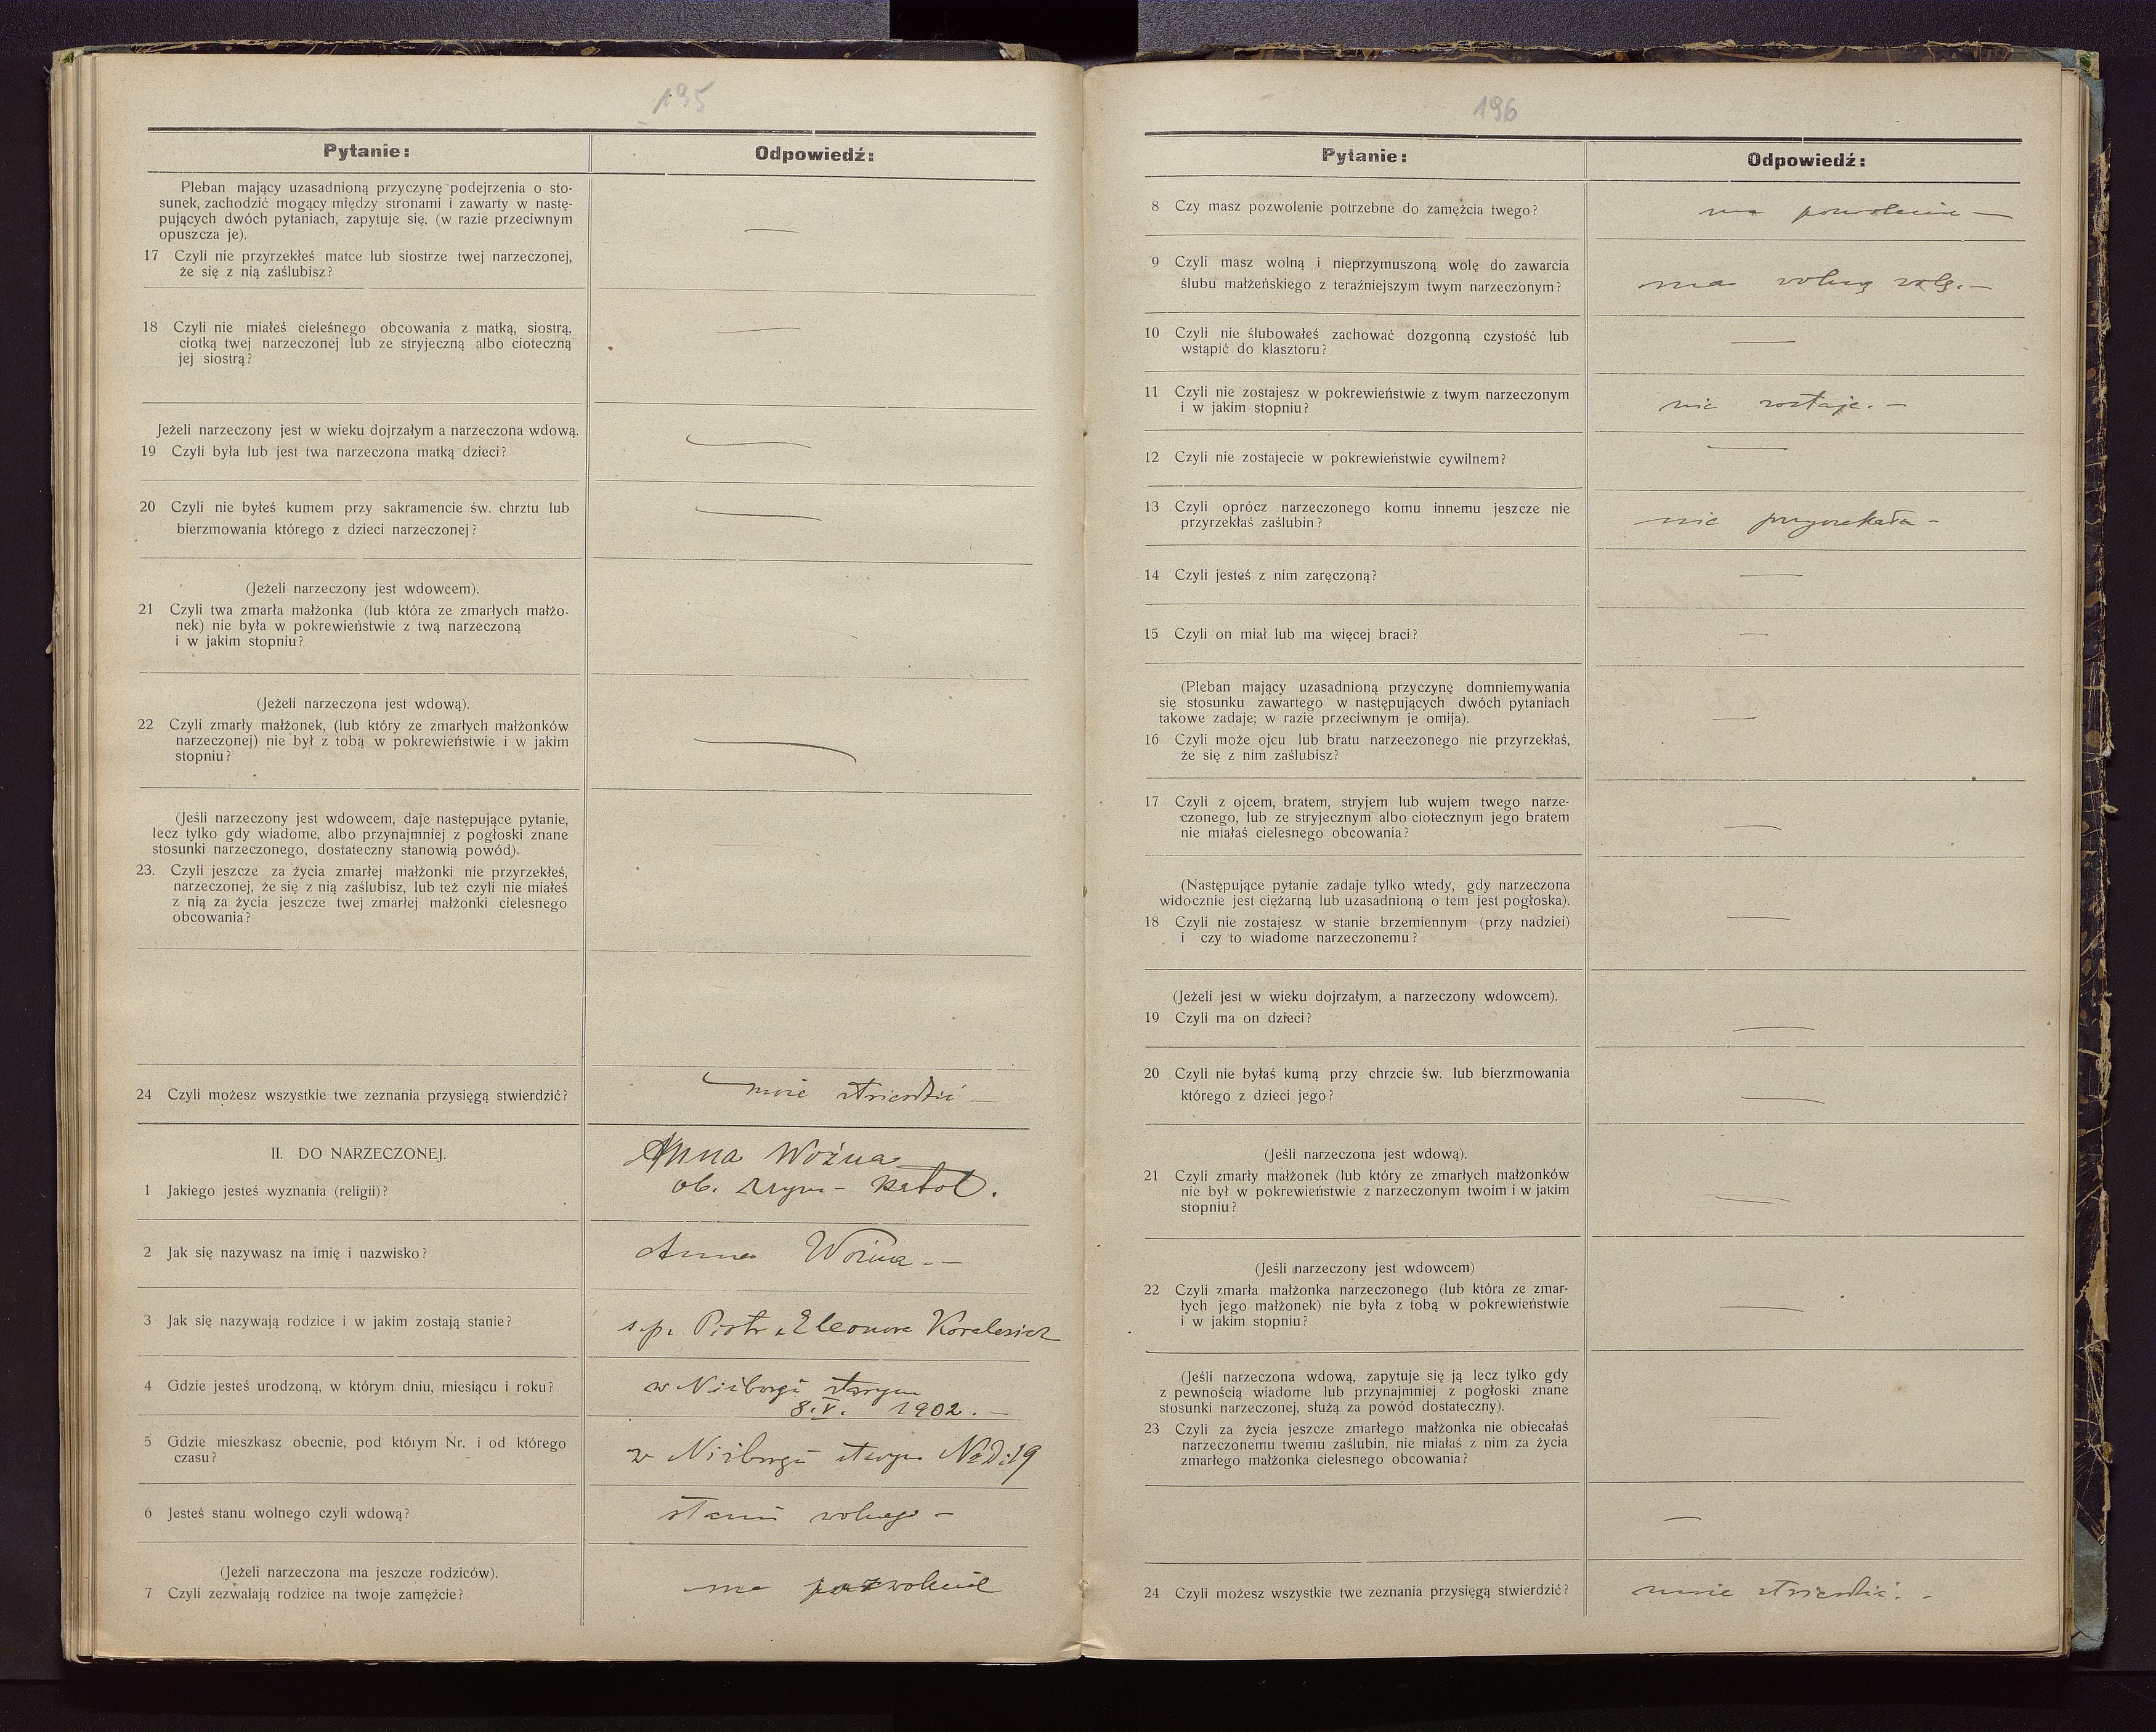 195
Pytanie:
Odpowiedź:
Pleban mający uzasadnioną przyczynę podejrzenia o sto-
sunek, zachodzić mogący między stronami i zawarty w nastę-
pujących dwóch pytaniach, zapytuje się, (w razie przeciwnym
opuszcza je).
17 Czyli nie przyrzekłeś matce lub siostrze twej narzeczonej,
że się z nią zaślubisz?
—
18 Czyli nie miałeś cieleśnego obcowania z matką, siostrą,
ciotką twej narzeczonej lub ze stryjeczną albo cioteczną
jej siostrą?
—
Jeżeli narzeczony jest w wieku dojrzałym a narzeczona wdową.
19 Czyli była lub jest twa narzeczona matką dzieci?
—
20 Czyli nie byłeś kumem przy sakramencie św. chrztu lub
bierzmowania którego z dzieci narzeczonej?
—
(Jeżeli narzeczony jest wdowcem).
21 Czyli twa zmarła małżonka (lub która ze zmarłych małżo-
nek) nie była w pokrewieństwie z twą narzeczoną
i w jakim stopniu?
(Jeżeli narzeczona jest wdową).
22 Czyli zmarły małżonek, (lub który ze zmarłych małżonków
narzeczonej) nie był z tobą w pokrewieństwie i w jakim
stopniu?
—
(Jeśli narzeczony jest wdowcem, daje następujące pytanie,
lecz tylko gdy wiadome, albo przynajmniej z pogłoski znane
stosunki narzeczonego, dostateczny stanowią powód).
23. Czyli jeszcze za życia zmarłej małżonki nie przyrzekłeś,
narzeczonej, że się z nią zaślubisz, lub też czyli nie miałeś
z nią za życia jeszcze twej zmarłej małżonki cielesnego
obcowania?
24 Czyli możesz wszystkie twe zeznania przysięgą stwierdzić?
może stwierdzić —
II. DO NARZECZONEJ.
Anna Woźna
1 Jakiego jesteś wyznania (religii)?
ob. rzym- katol.
2 Jak się nazywasz na imię i nazwisko?
Anna Woźna. —
3 Jak się nazywają rodzice i w jakim zostają stanie?
s.p. Piotr i Eleonora
4 Gdzie jesteś urodzoną, w którym dniu, miesiącu i roku?
w Niżborgu starym
8.V. 1902. —
5 Gdzie mieszkasz obecnie, pod którym Nr. i od którego
czasu?
w Niżborgu starym Nd: 19
6 Jesteś stanu wolnego czyli wdową?
stanu wolnego —
(Jeżeli narzeczona ma jeszcze rodziców).
7 Czyli zezwalają rodzice na twoje zamężcie?
ma pozwolenie
196
Pytanie:
Odpowiedź:
8 Czy masz pozwolenie potrzebne do zamężcia twego?
ma pozwolenie —
9 Czyli masz wolną i nieprzymuszoną wolę do zawarcia
ślubu małżeńskiego z teraźniejszym twym narzeczonym?
ma wolną wolę. —
10 Czyli nie ślubowałeś zachować dozgonną czystość lub
wstąpić do klasztoru?
—
11 Czyli nie zostajesz w pokrewieństwie z twym narzeczonym
i w jakim stopniu?
nie zostaje. —
12 Czyli nie zostajecie w pokrewieństwie cywilnem?
—
13 Czyli oprócz narzeczonego komu innemu jeszcze nie
przyrzekłaś zaślubin?
nie przyrzekała —
14 Czyli jesteś z nim zaręczoną?
—
15 Czyli on miał lub ma więcej braci?
—
(Pleban mający uzasadnioną przyczynę domniemywania
się stosunku zawartego w następujących dwóch pytaniach
takowe zadaje; w razie przeciwnym je omija).
16 Czyli może ojcu lub bratu narzeczonego nie przyrzekłaś,
że się z nim zaślubisz?
—
17 Czyli z ojcem, bratem, stryjem lub wujem twego narze-
czonego, lub ze stryjecznym albo ciotecznym jego bratem
nie miałaś cielesnego obcowania?
—
(Następujące pytanie zadaje tylko wtedy, gdy narzeczona
widocznie jest ciężarną lub uzasadnioną o tem jest pogłoska).
18 Czyli nie zostajesz w stanie brzemiennym (przy nadziei)
i czy to wiadome narzeczonemu?
—
(Jeżeli jest w wieku dojrzałym, a narzeczony wdowcem).
19 Czyli ma on dzieci?
—
20 Czyli nie byłaś kumą przy chrzcie św. lub bierzmowania
którego z dzieci jego?
—
(Jeśli narzeczona jest wdową).
21 Czyli zmarły małżonek (lub który ze zmarłych małżonków
nie był w pokrewieństwie z narzeczonym twoim i w jakim
stopniu?
—
(Jeśli narzeczony jest wdowcem)
22 Czyli zmarła małżonka narzeczonego (lub która ze zmar-
łych jego małżonek) nie była z tobą w pokrewieństwie
i w jakim stopniu?
—
(Jeśli narzeczona wdową, zapytuje się ją lecz tylko gdy
z pewnością wiadome lub przynajmniej z pogłoski znane
stosunki narzeczonej, służą za powód dostateczny).
23 Czyli za życia jeszcze zmarłego małżonka nie obiecałaś
narzeczonemu twemu zaślubin, nie miałaś z nim za życia
zmarłego małżonka cielesnego obcowania?
—
—
24 Czyli możesz wszystkie twe zeznania przysięgą stwierdzić?
może stwierdzić. —